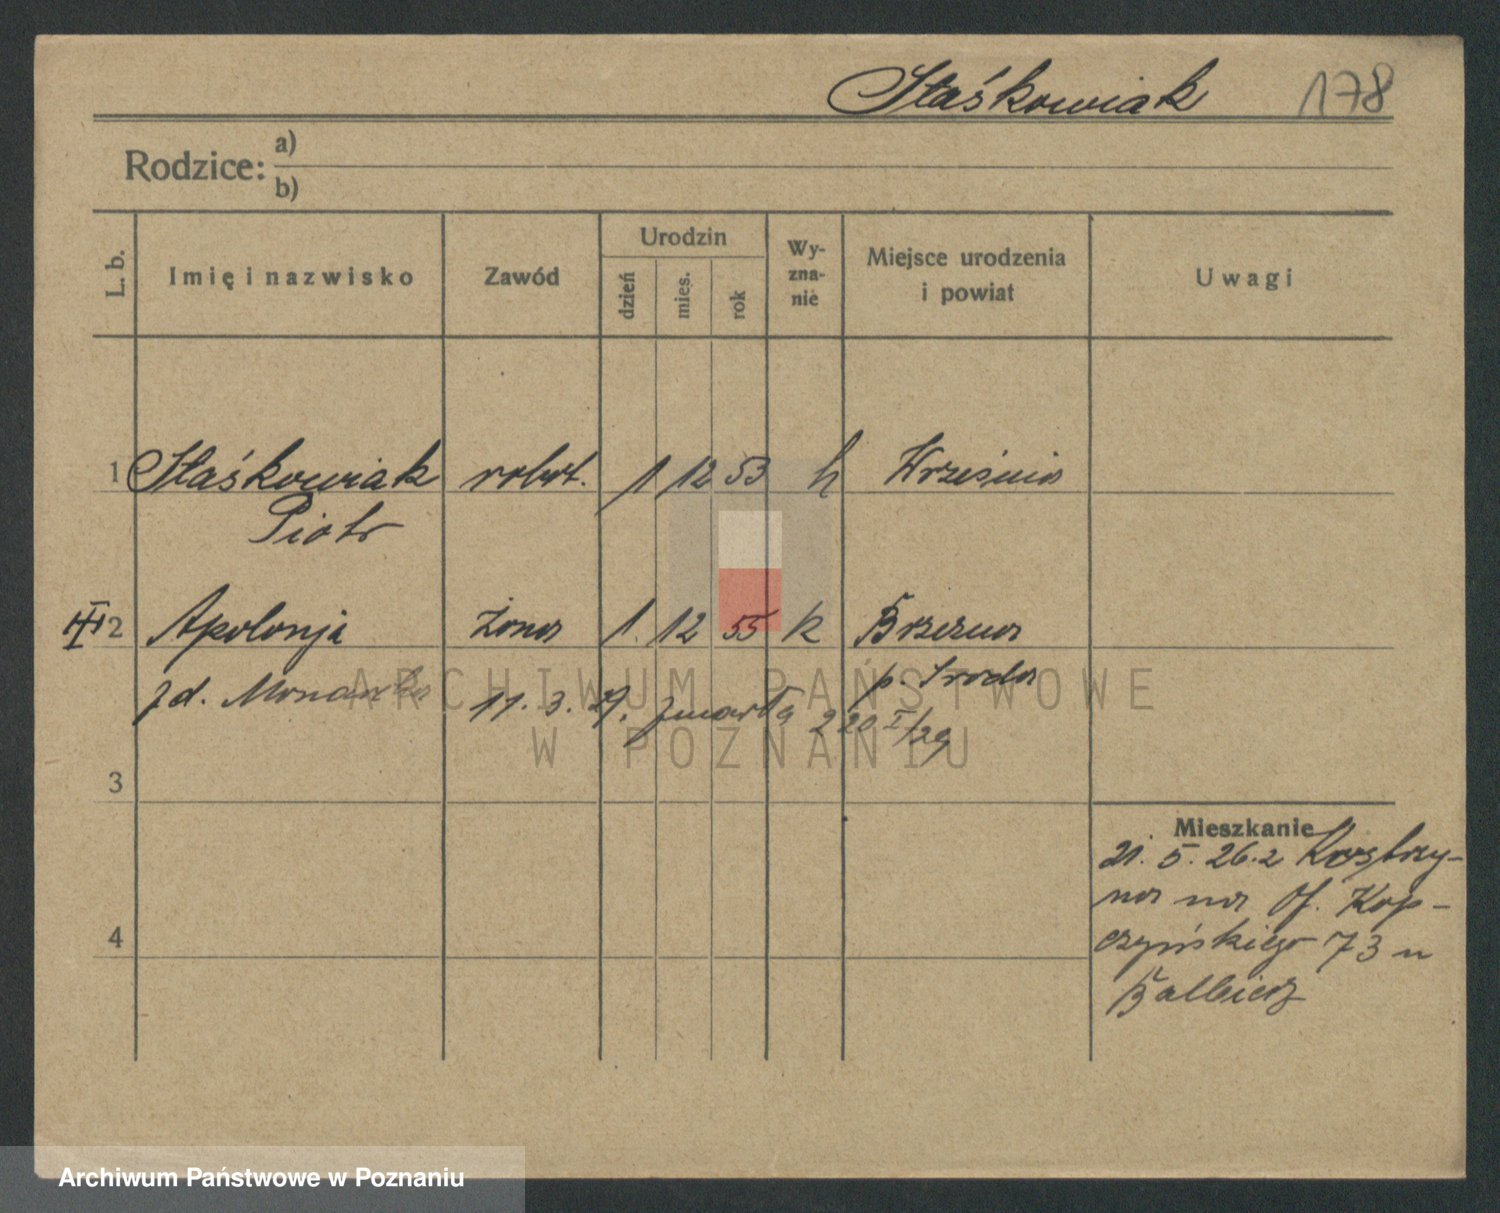 Staśkowiak 178
Rodzice: a)
b)
L. b. Imię i nazwisko Zawód Urodzin dzień mies. rok Wy-zna-nie Miejsce urodzenia i powiat Uwagi
1 Staśkowiak robot. 1 12 53 k Września
Piotr
2 Apolonja żona 1. 12 55 k Brzezna
p. Środa
11. 3. zmarła 20 I/29
3
Mieszkanie
21. 5. 26. z Kostrzy-
na na Kop-
czyńskiego 73 u
4
ARCHIWUM PAŃSTWOWE
W POZNANIU
Archiwum Państwowe w Poznaniu